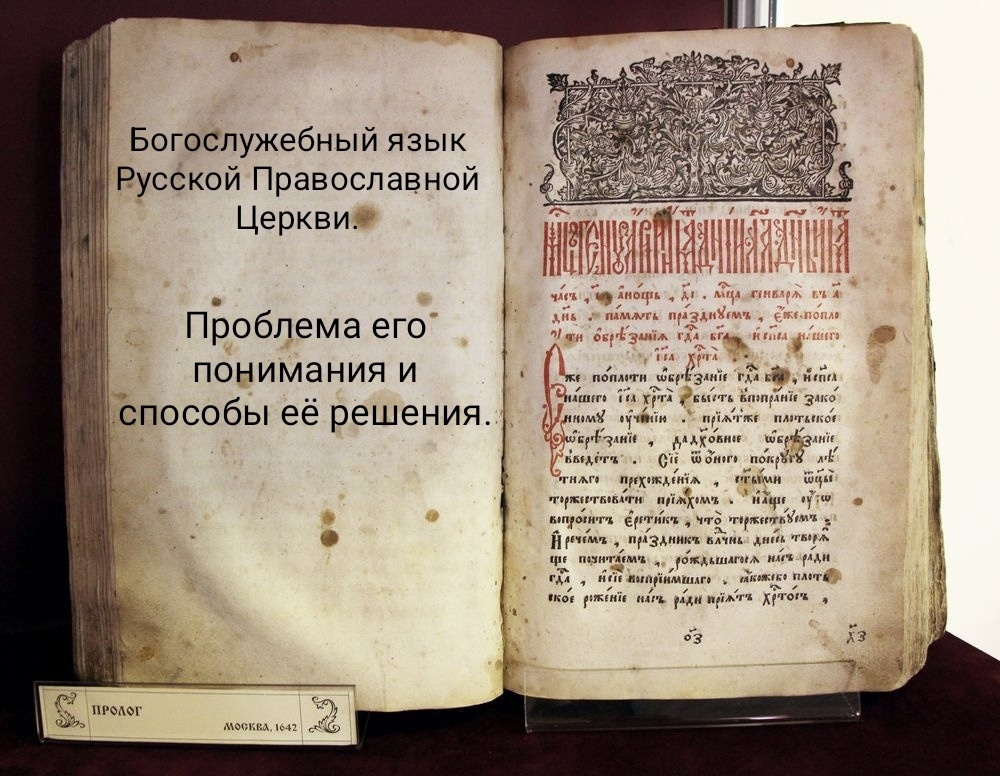 Богослужебный язык
Русской Православной
Церкви.
Проблема его
понимания и
способы её решения.
часъ, і҃ а҆нощь, д҃і. мц҃а генварѧ въ а҃
днь. памѧть пра́зднуемъ, є҆́же попло
ти ѡ҆брѣ́занїѧ гд҃а бг҃а. и҆ сп҃са на́шего
і҆с҃а хрт҃а
є҆́же по́плоти ѡ҆брѣ́занїе гд҃а бг҃а, и҆сп҃са
на́шего і҆с҃а хрт҃а, бы́сть
нному ᲂу҆че́нїю. прїѧ́тже пло́тьское
ѡ҆брѣ́занїе, да дх҃о́вное ѡ҆брѣ́занїе
введе́тъ. Сїѐ ѿ о҆́ного по́кругу лѣ́
тнѧго прехожде́нїѧ, ст҃ы́ми ѻ҆тц҃ы̀
торжествова́ти прїѧ́хомъ. и҆а҆́ще ᲂу҆́бѡ
вопро́ситъ є҆рети́къ, что̀ торжеству́емъ,
И҆ рече́мъ, пра́здникъ влч҃нь дне́сь творѧ́
ще почита́емъ, ро́ждьшагосѧ на́съ ра́ди
гд҃а, и҆ сїѐ воспрїи́мшаго. ꙗ҆́коже бо пло́ть
ско́е роже́нїе на́съ ра́ди прїѧ́тъ хрⷭ҇то́съ,
о҃з
х҃з
ПРОЛОГ
МОСКВА, 1642